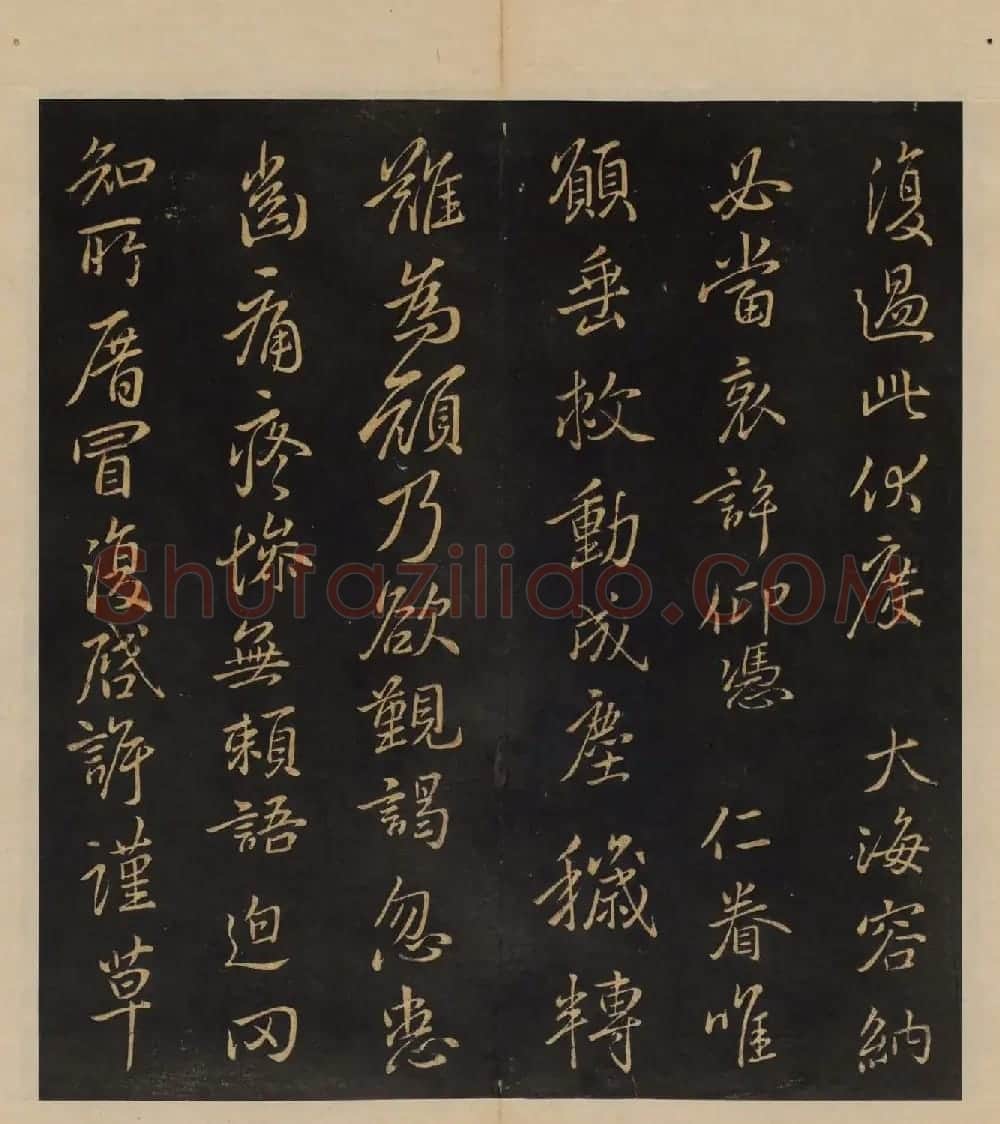 復過此伏度 大海容納
必當哀許仰憑 仁眷唯
願垂救動成塵穢轉
難為顏乃欲覲謁忽患
齒痛疼慘無賴語迫罔
知所厝冒復啓訴謹草
Shufaziliao.COM